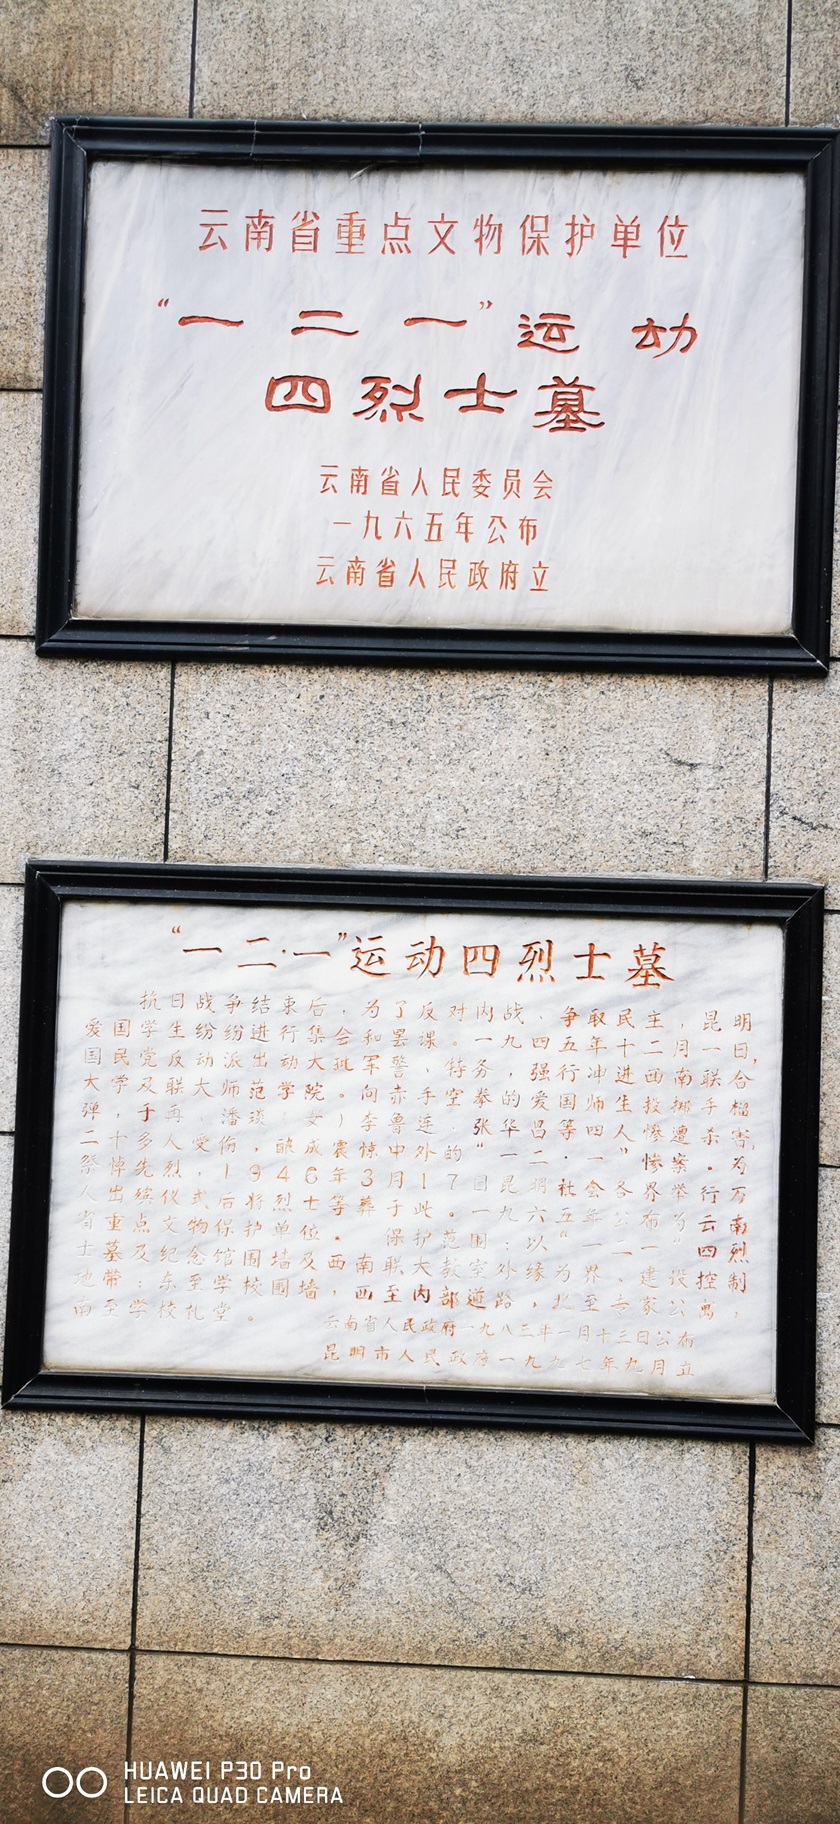 云南省重点文物保护单位
“一二一”运动
四烈士墓
云南省人民委员会
一九六五年公布
云南省人民政府立
“一二·一”运动四烈士墓
抗日战争结束后，为了反对内战、争取民主，昆明
爱国学生纷纷进行集会和罢课。一九四五年十二月一日，
国民党反动派出动大批军警、特务，强行冲进西南联合
大学及联大师范学院。向赤手空拳的爱国师生投掷手榴
弹，于再、潘琰（女）李鲁连、张华昌等四人惨遭杀害，
二十多人受伤，酿成震惊中外的“一二·一”惨案。为
祭悼先烈，1946年3月17日昆明社会各界举行万
人出殡仪式后将烈士等葬于此。一九六五年公布为云南
省重点文物保护单位。保护范围：以“一二·一”四烈
士墓及纪念馆围墙及西南联大教室外缘为界、建设控制
地带：东至学校围墙，西至内部道路，北至专家公寓，
南至学校礼堂。
云南省人民政府一九八三年一月十三日公布
昆明市人民政府一九九七年九月立
HUAWEI P30 Pro
LEICA QUAD CAMERA